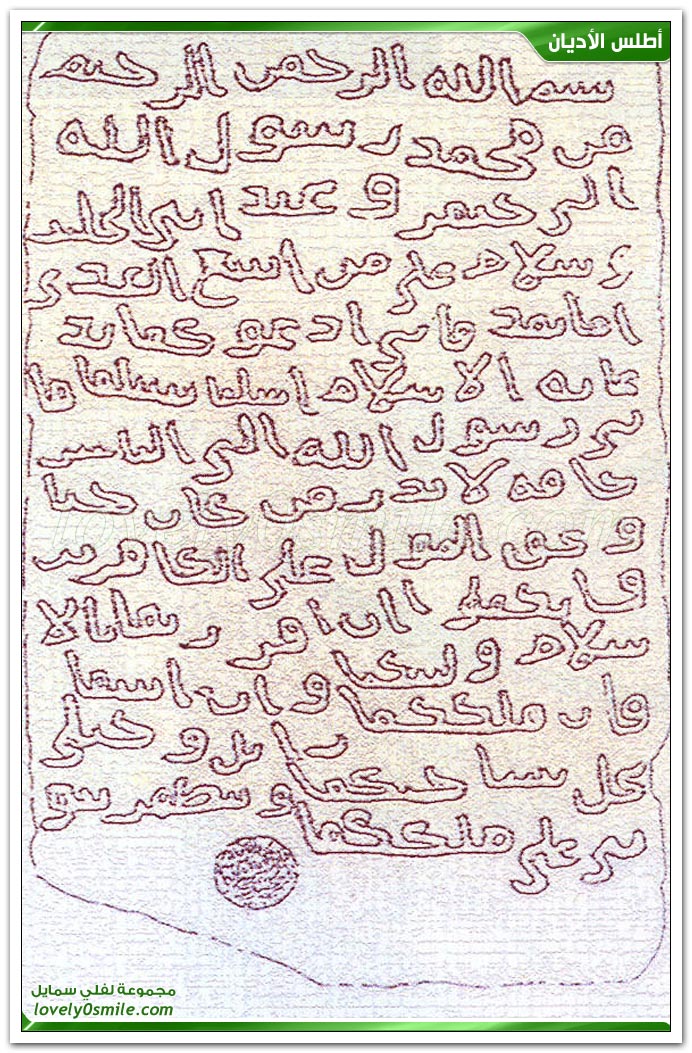 أطلس الأديان
بسم الله الرحمن الرحيم
من محمد رسول الله
الى جيفر و عبد ابنى الجلند
ى سلام على من اتبع الهدى
اما بعد فاني ادعوكما بد
عايه الاسلام اسلما تسلما فا
ني رسول الله الى الناس
كافه لانذر من كان حيا
و يحق القول على الكافرين
وانكما ان اقررتما بالا
سلام وليتكما وان ابيتما
فان ملككما زايل و خيلي
تحل بساحتكما و تظهر نبو
تي على ملككما
مجموعة لفلي سمايل
lovely0smile.com